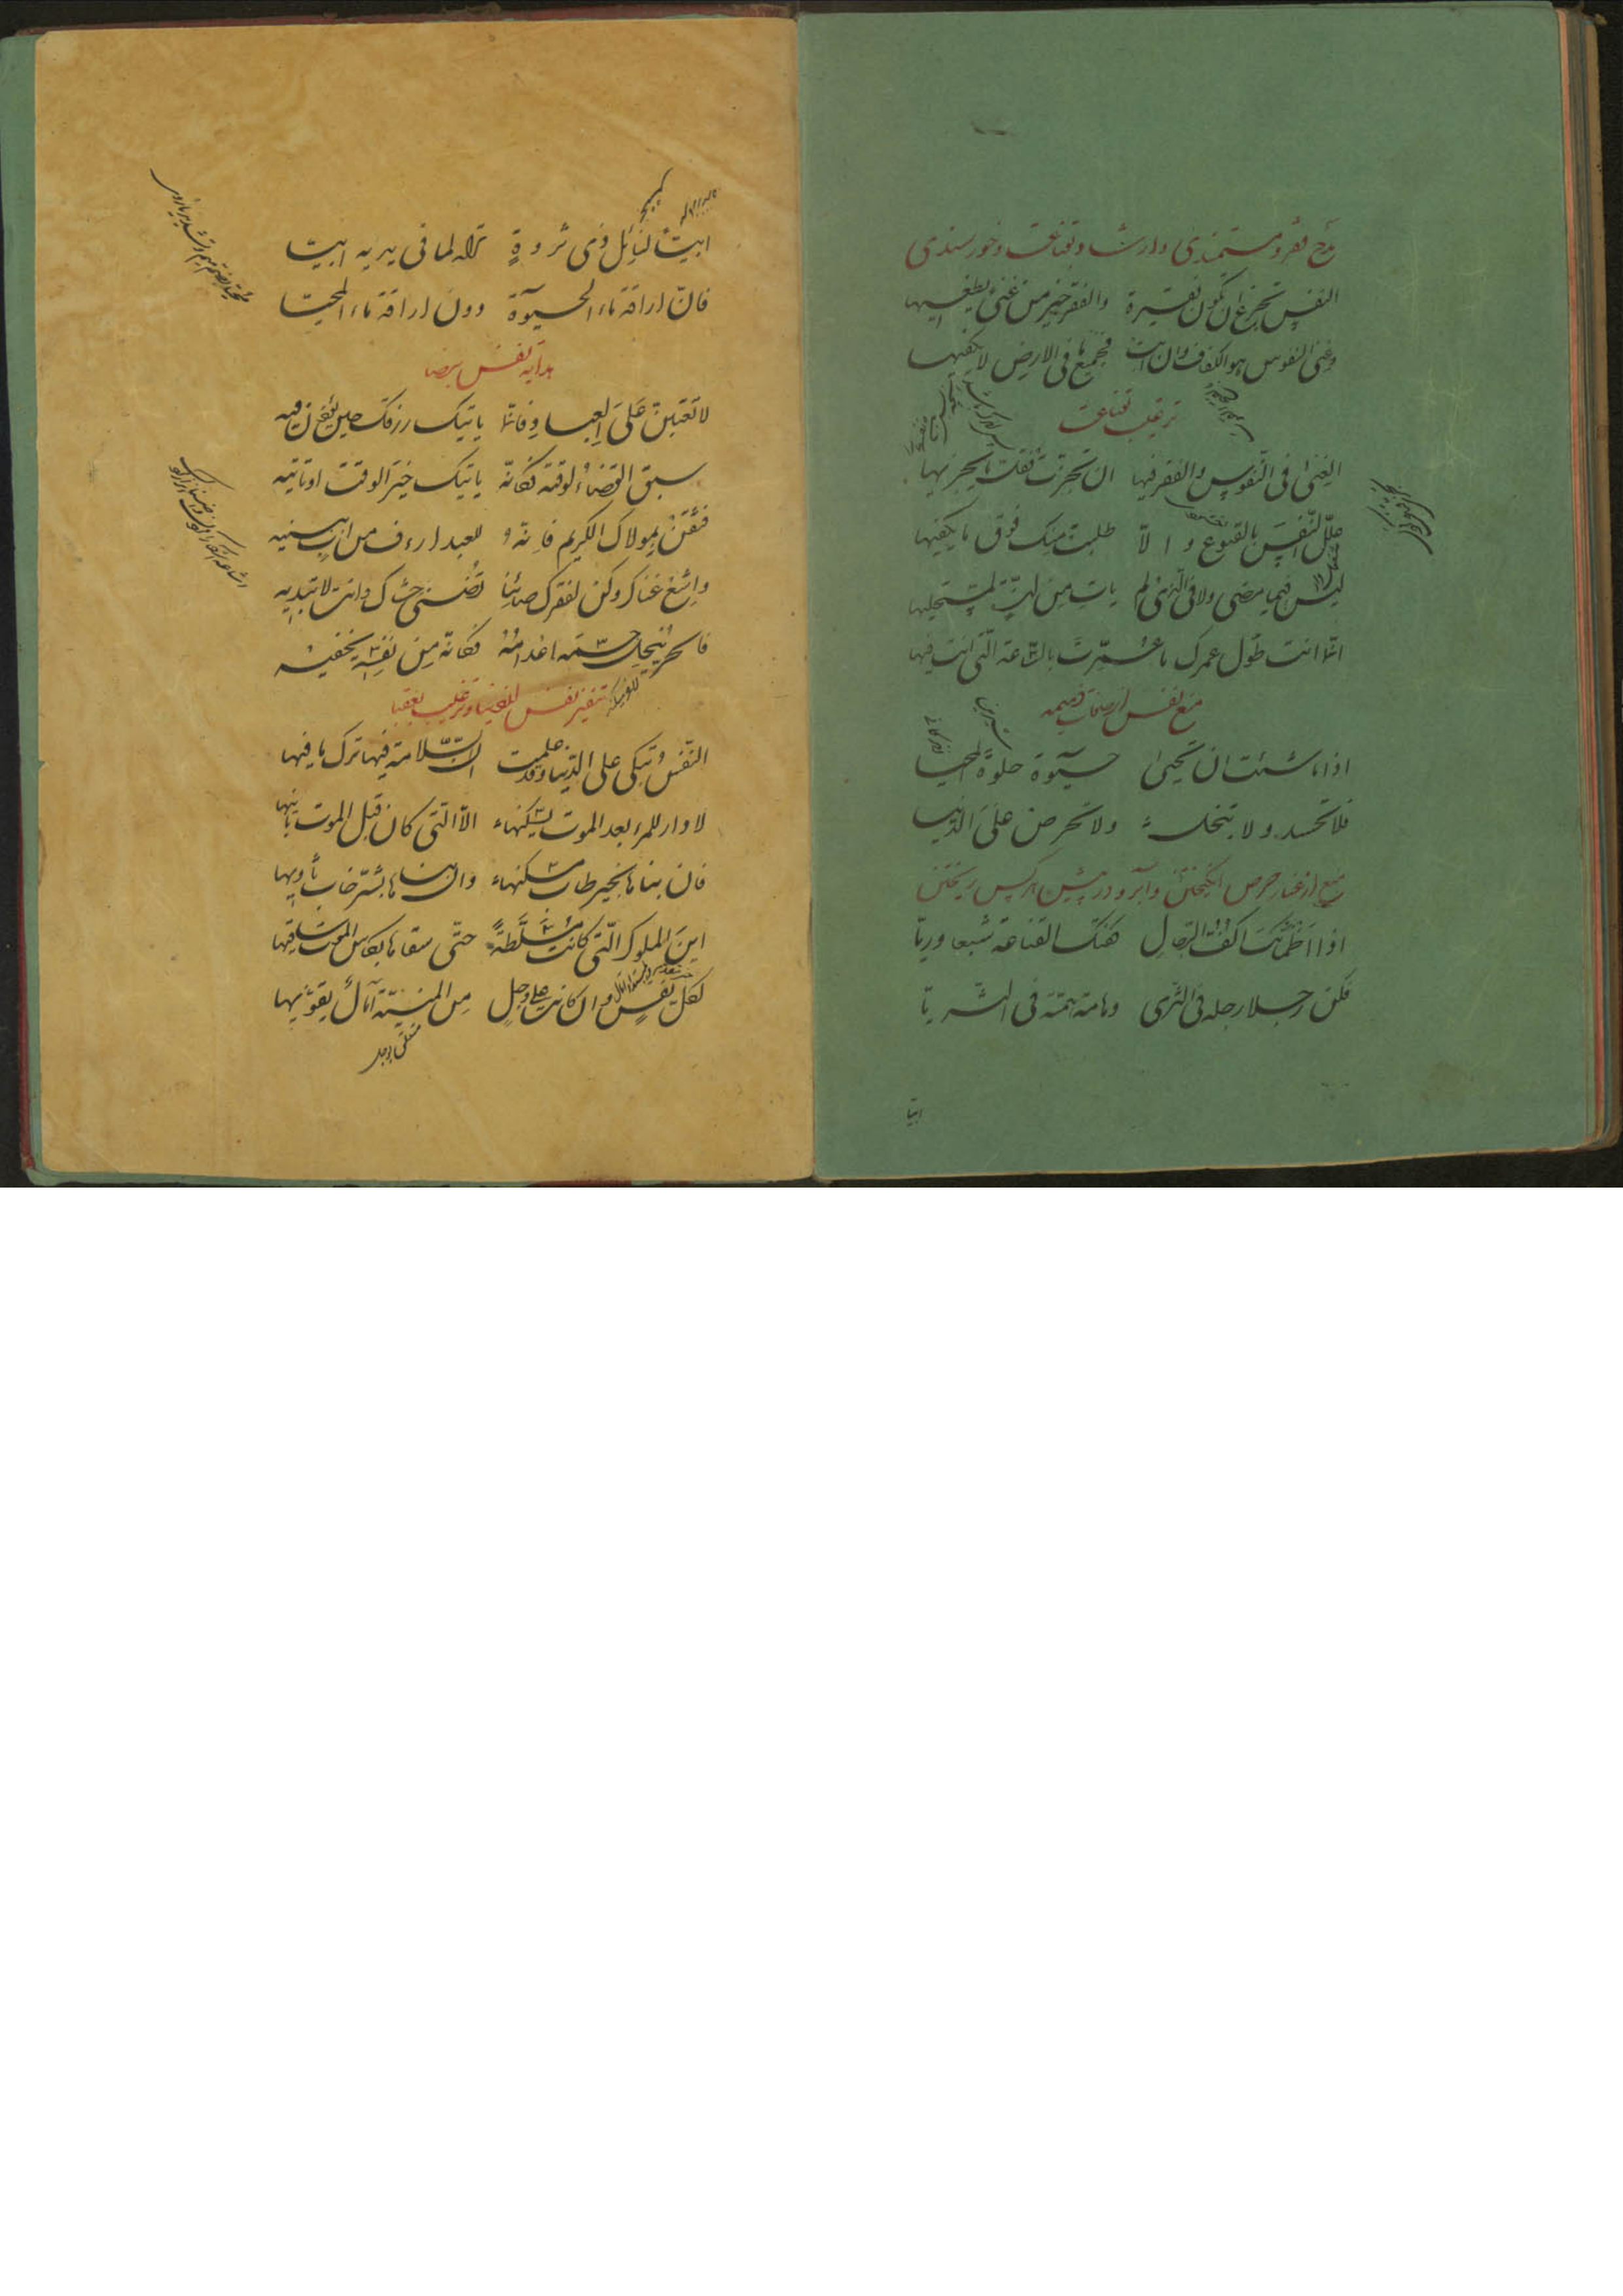 مدح فقر و مستمندی و ارشاد بقناعت و خورسندی
النفس تجزع ان تکون فقیرة والفقر خیر من غنی یطغیها
وغنی النفوس هو الکفاف وان ابت فجمیع ما فی الارض لا یکفیها
ترغیب بقناعت
الغنی فی النفوس والفقر فیها ان تجزت فقلت ما یجزیها
علل النفس بالقنوع و الّا طلبت منک فوق ما یکفیها
لیس فیما مضی ولا فی الذی لم یات من لذّة لمستحلیها
انما انت طول عمرک ما عمّرت بالساعة التی انت فیها
منع نفس از صفات ذمیمه
اذا ما شئت ان تحیی حیوة حلوة المحیا
فلا تحسد ولا تبخل ولا تحرص علی الدنیا
منع از غبار حرص انگیختن و آبرو در پیش هر کس ریختن
اذا اظمأتک اکفّ الرجال کفتک القناعة شبعا وریّا
فکن رجلا رجله فی الثری وهامة همّته فی الثریّا
ابیّا
ابیّا لنائل ذی ثروةٍ تراه لما فی یدیه ابیّا
فانّ اراقة ماء الحیوة دون اراقة ماء المحیّا
هدایة نفس برضا
لا تعتبن علی العباد فانما یاتیک رزقک حین یؤذن فیه
سبق القضاء لوقته فکانّه یاتیک خیر الوقت او تاتیه
فثقن بمولاک الکریم فانّه للعبد ارءف من اب ببنیه
واشع غناک وکن لفقرک صائنا تضنی حشاک وانت لا تبدیه
فالحرّ ینحل جسمه اعدامه فکانّه من نفسه یخفیه
تنفیر نفس از دنیا و ترغیب بعقبا
النفس تبکی علی الدنیا وقد علمت انّ السلامة فیها ترک ما فیها
لا دار للمرء بعد الموت یسکنها الّا التی کان قبل الموت بانیها
فان بناها بخیر طاب مسکنها وان بناها بشرّ خاب ثاویها
این الملوک التی کانت مسلّطة حتی سقاها بکاس الموت ساقیها
لکلّ نفس وان کانت علی وجل من المنیّة آمال یقوّیها